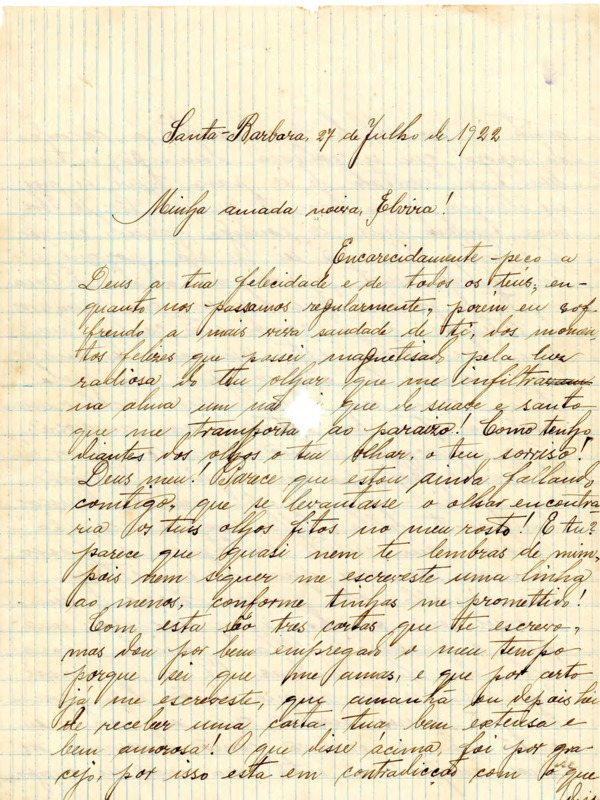 Santa-Barbara, 27 de Julho de 1922
Minha amada noiva, Elvira!
Encarecidamente peço a
Deus a tua felecidade e de todos os teus, en-
quanto nos passamos regularmente, porém eu sof-
frendo a mais viva saudade de ti, dos momen-
tos felizes que passei magnetisado pela luz
radiosa do teu olhar que me infiltra
na alma um que de suave e santo
que me transporta ao paraizo! Como tenho
diantes dos olhos o teu olhar, o teu sorriso!
Deus meu! Parece que estou ainda fallando
comtigo, que se levantasse o olhar encontra
ria os teus olhos fitos no meu rosto! E tu?
parece que quasi nem te lembras de mim,
pois nem siquer me escreveste uma linha
ao menos, conforme tinhas me promettido!
Com esta são tres cartas que te escrevo,
mas dou por bem empregado o meu tempo
porque sei que me amas, e que por certo
já me escreveste, que amanhã ou depois hei
de receber uma carta tua bem extensa e
bem amorosa! O que disse ácima, foi por gra
cejo, por isso esta em contradicção com o que